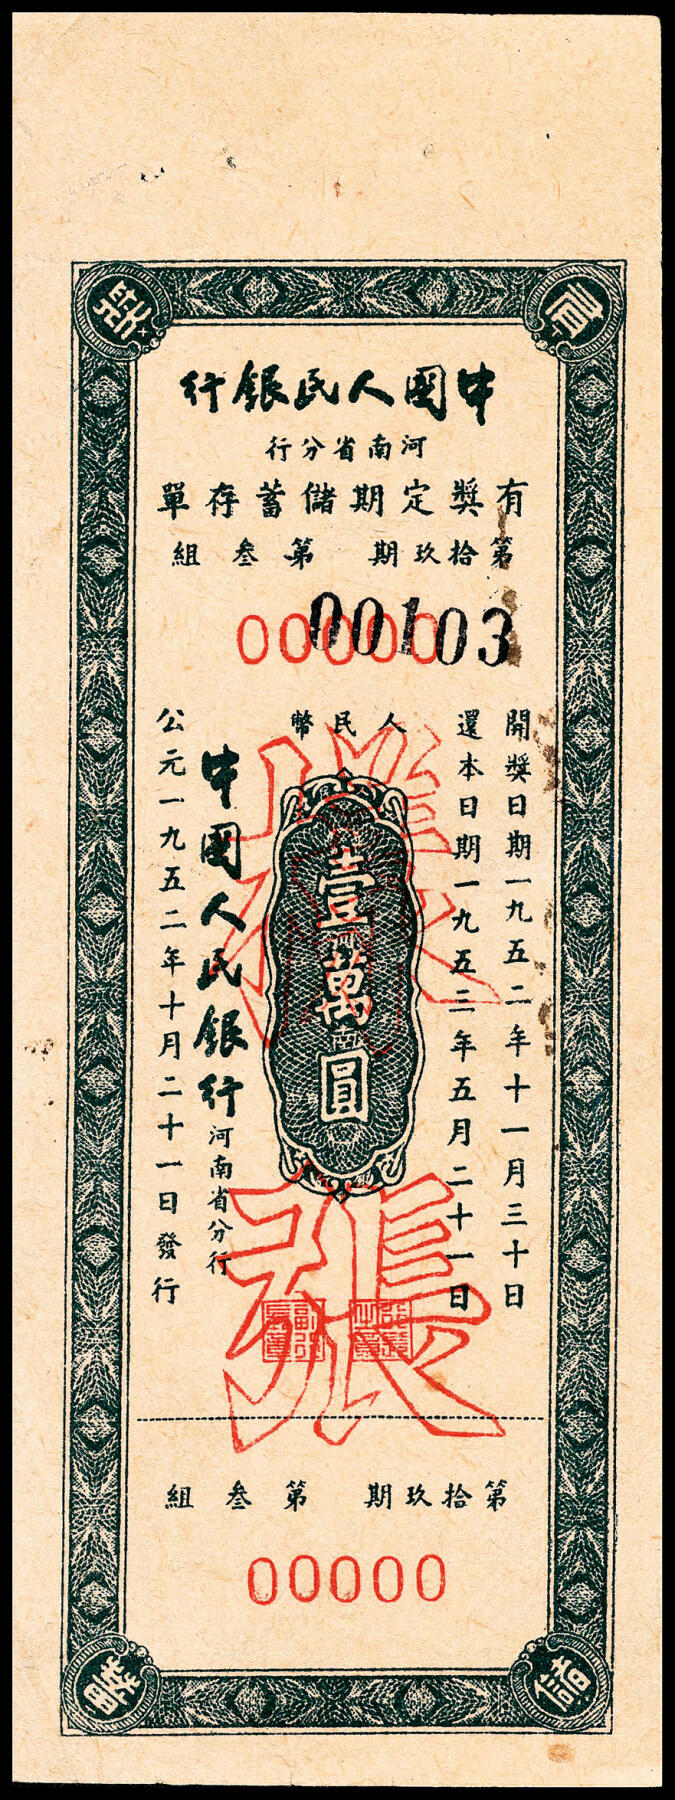 有獎儲蓄
中國人民銀行
河南省分行
有獎定期儲蓄存單
第拾玖期 第叁組
00000
00103
開獎日期一九五二年十一月三十日
還本日期一九五三年五月二十一日
人民幣
壹萬圓
樣張
中國人民銀行河南省分行
公元一九五二年十月二十一日發行
第拾玖期 第叁組
00000